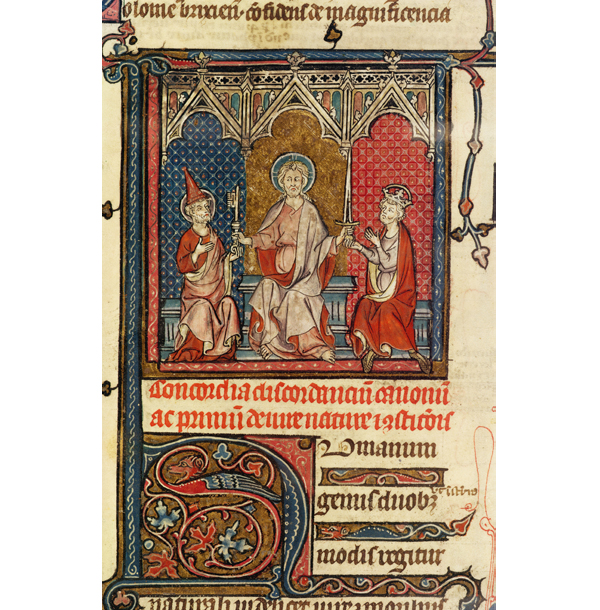 tolome brixien̄. cōfidens de magnificencia
Concordia discordanciū canonū
ac primū de iure nature ⁊ ꝯstitōis
Vmanum
genus duobꝫ
modis regitur
naturali uidelicet iure ⁊ moribus